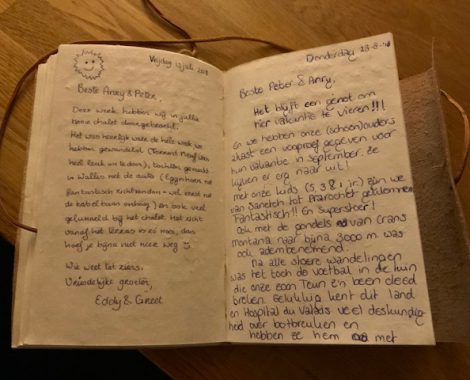 Vrijdag 13 juli 2018
Beste Anry & Peter,
Deze week hebben wij in jullie
mooie chalet doorgebracht.
Het was heerlijk weer de hele week. We
hebben gewandeld (Torrent Neuf van
heel leuk om te doen), tochten gemaakt
in Wallis met de auto (Eggishorn
fantastisch zicht rondom - wel eerst met
de kabelbaan omhoog) en ook veel
geluierd bij het chalet. Het zicht
vanaf het terras is zo mooi, dan
hoef je bijna niet meer weg
Wie weet tot ziens,
Vriendelijke groeten,
Eddy & Greet
Donderdag 23-8-'18
Beste Peter & Anry,
Het blijft een genot om
hier vakantie te vieren!!!
En we hebben onze (schoon)ouders
alvast een voorproef gegeven voor
hun vakantie in september. Ze
kijken er erg naar uit!
Met onze kids (5, 3 & 1 jr.) zijn we
van Sanetch tot Prarochet geklommen
Fantastisch!! En Superstoer!
Ook met de gondels van Crans
montana naar bijna 3000 m was
ook adembenemend.
Na alle stoere wandelingen
was het toch de voetbal in de tuin
die onze zoon Teun z'n been deed
breken. Gelukkig kent dit land
en Hospital du Valais veel deskundig
heid over botbreuken en
hebben ze hem met